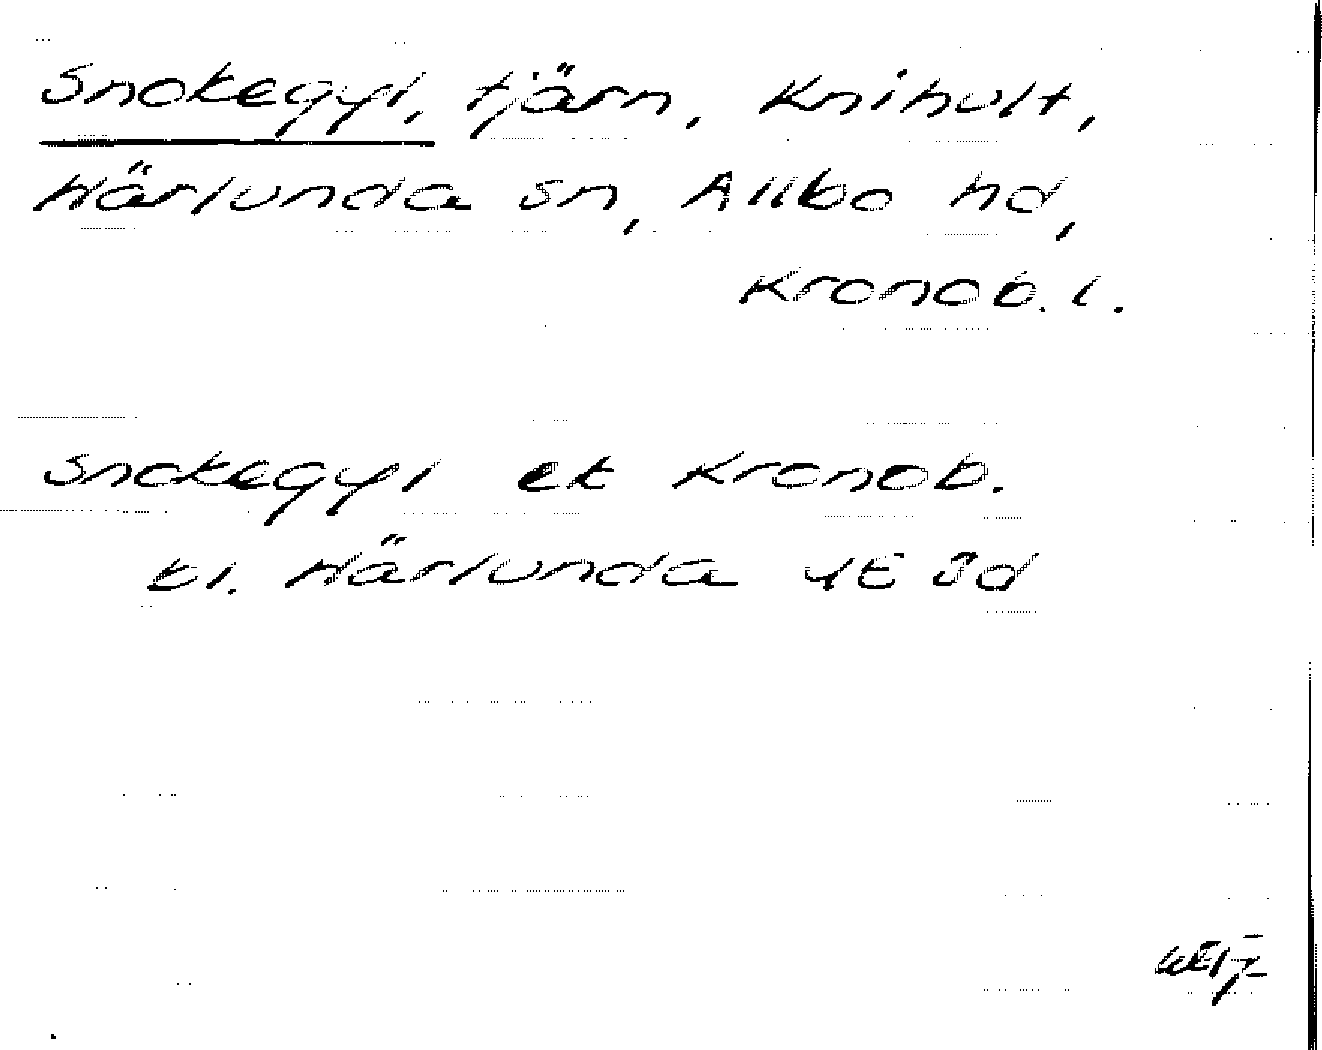 Snokegyl, tjärn, Knihult,
Härlunda sn, Allbo hd,
Kronob. l.
Snokegyl ek Kronob.
kl. Härlunda 4E 3d